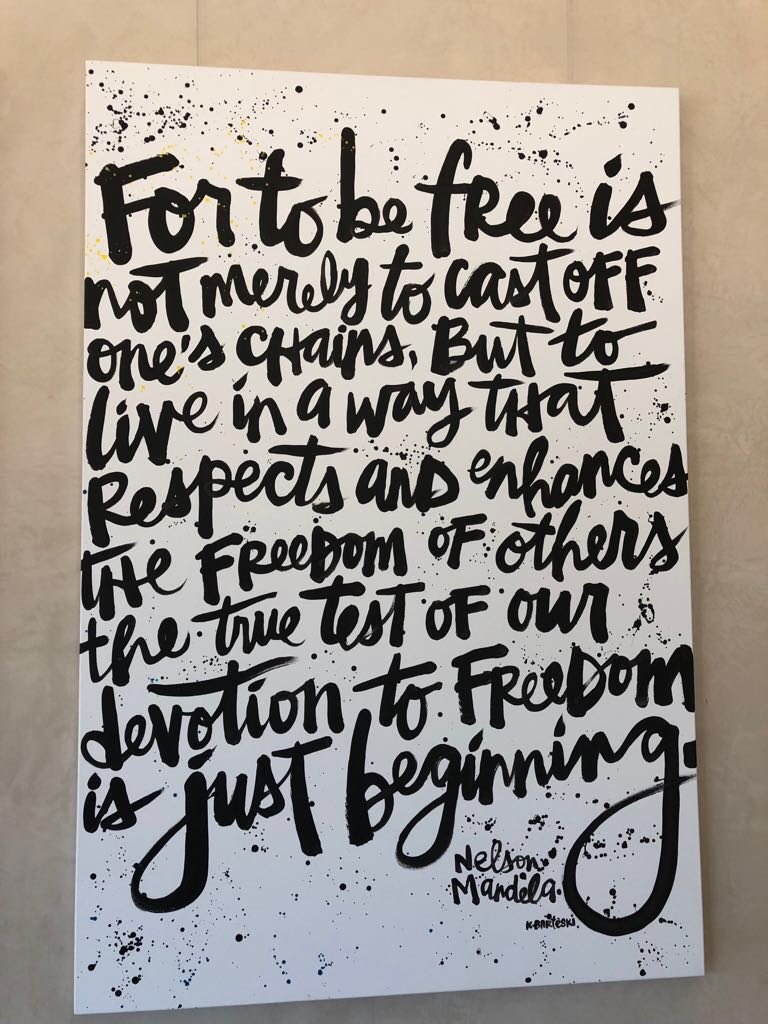 For to be free is
not merely to cast off
one's chains, But to
live in a way that
Respects and enhances
the Freedom of others
the true test of our
devotion to Freedom
is just beginning.
Nelson
Mandela.
K·BARTESKI